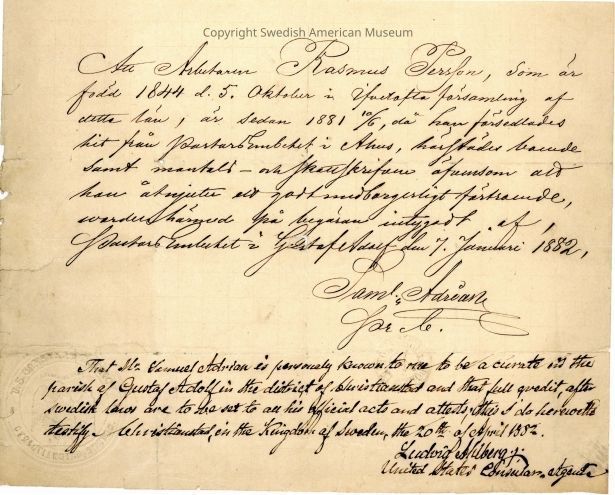 Copyright Swedish American Museum
Att Arbetaren Rasmus Persson, som är
född 1844 d. 5. Oktober i församling af
detta län, är sedan 1881 då han förflyttades
hit från PastorsEmbetet i Åhus, härstädes boende
samt mantals- och skattskrifven äfvensom att
han åtnjuter ett godt medborgerligt förtroende,
warder härmed på begäran intygadt af,
PastorsEmbetet i Gustaf Adolf den 7. Januari 1882,
Saml. Adrian
That Mr. Samuel Adrian is personaly known to me to be a curate in the
parish of Gustaf Adolf in the district of Christianstad and that full credit, after
Swedish laws are to be set to all his official acts and attests, this I do herewith
testify. Christianstad, in the Kingdom of Sweden, the 20th of April 1882.
Ludvig Ahlberg
United States Consular Agent